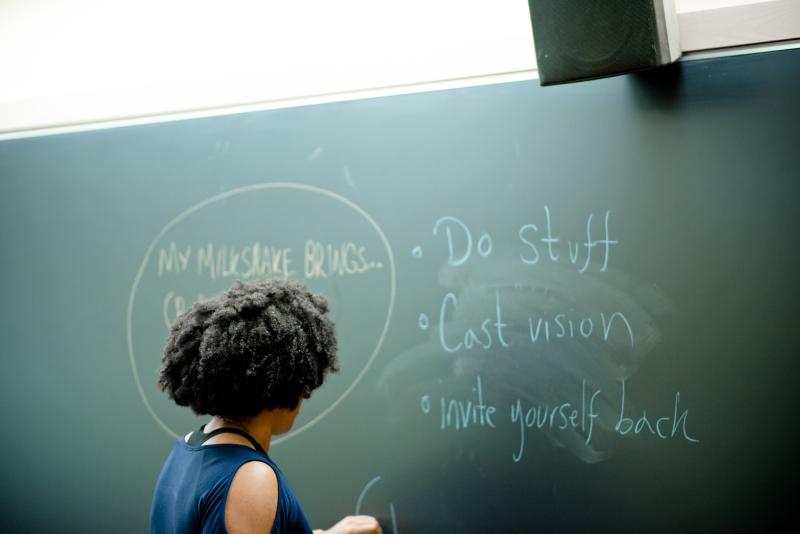 MY MILKSHAKE BRINGS...
• Do stuff
• Cast vision
• invite yourself back